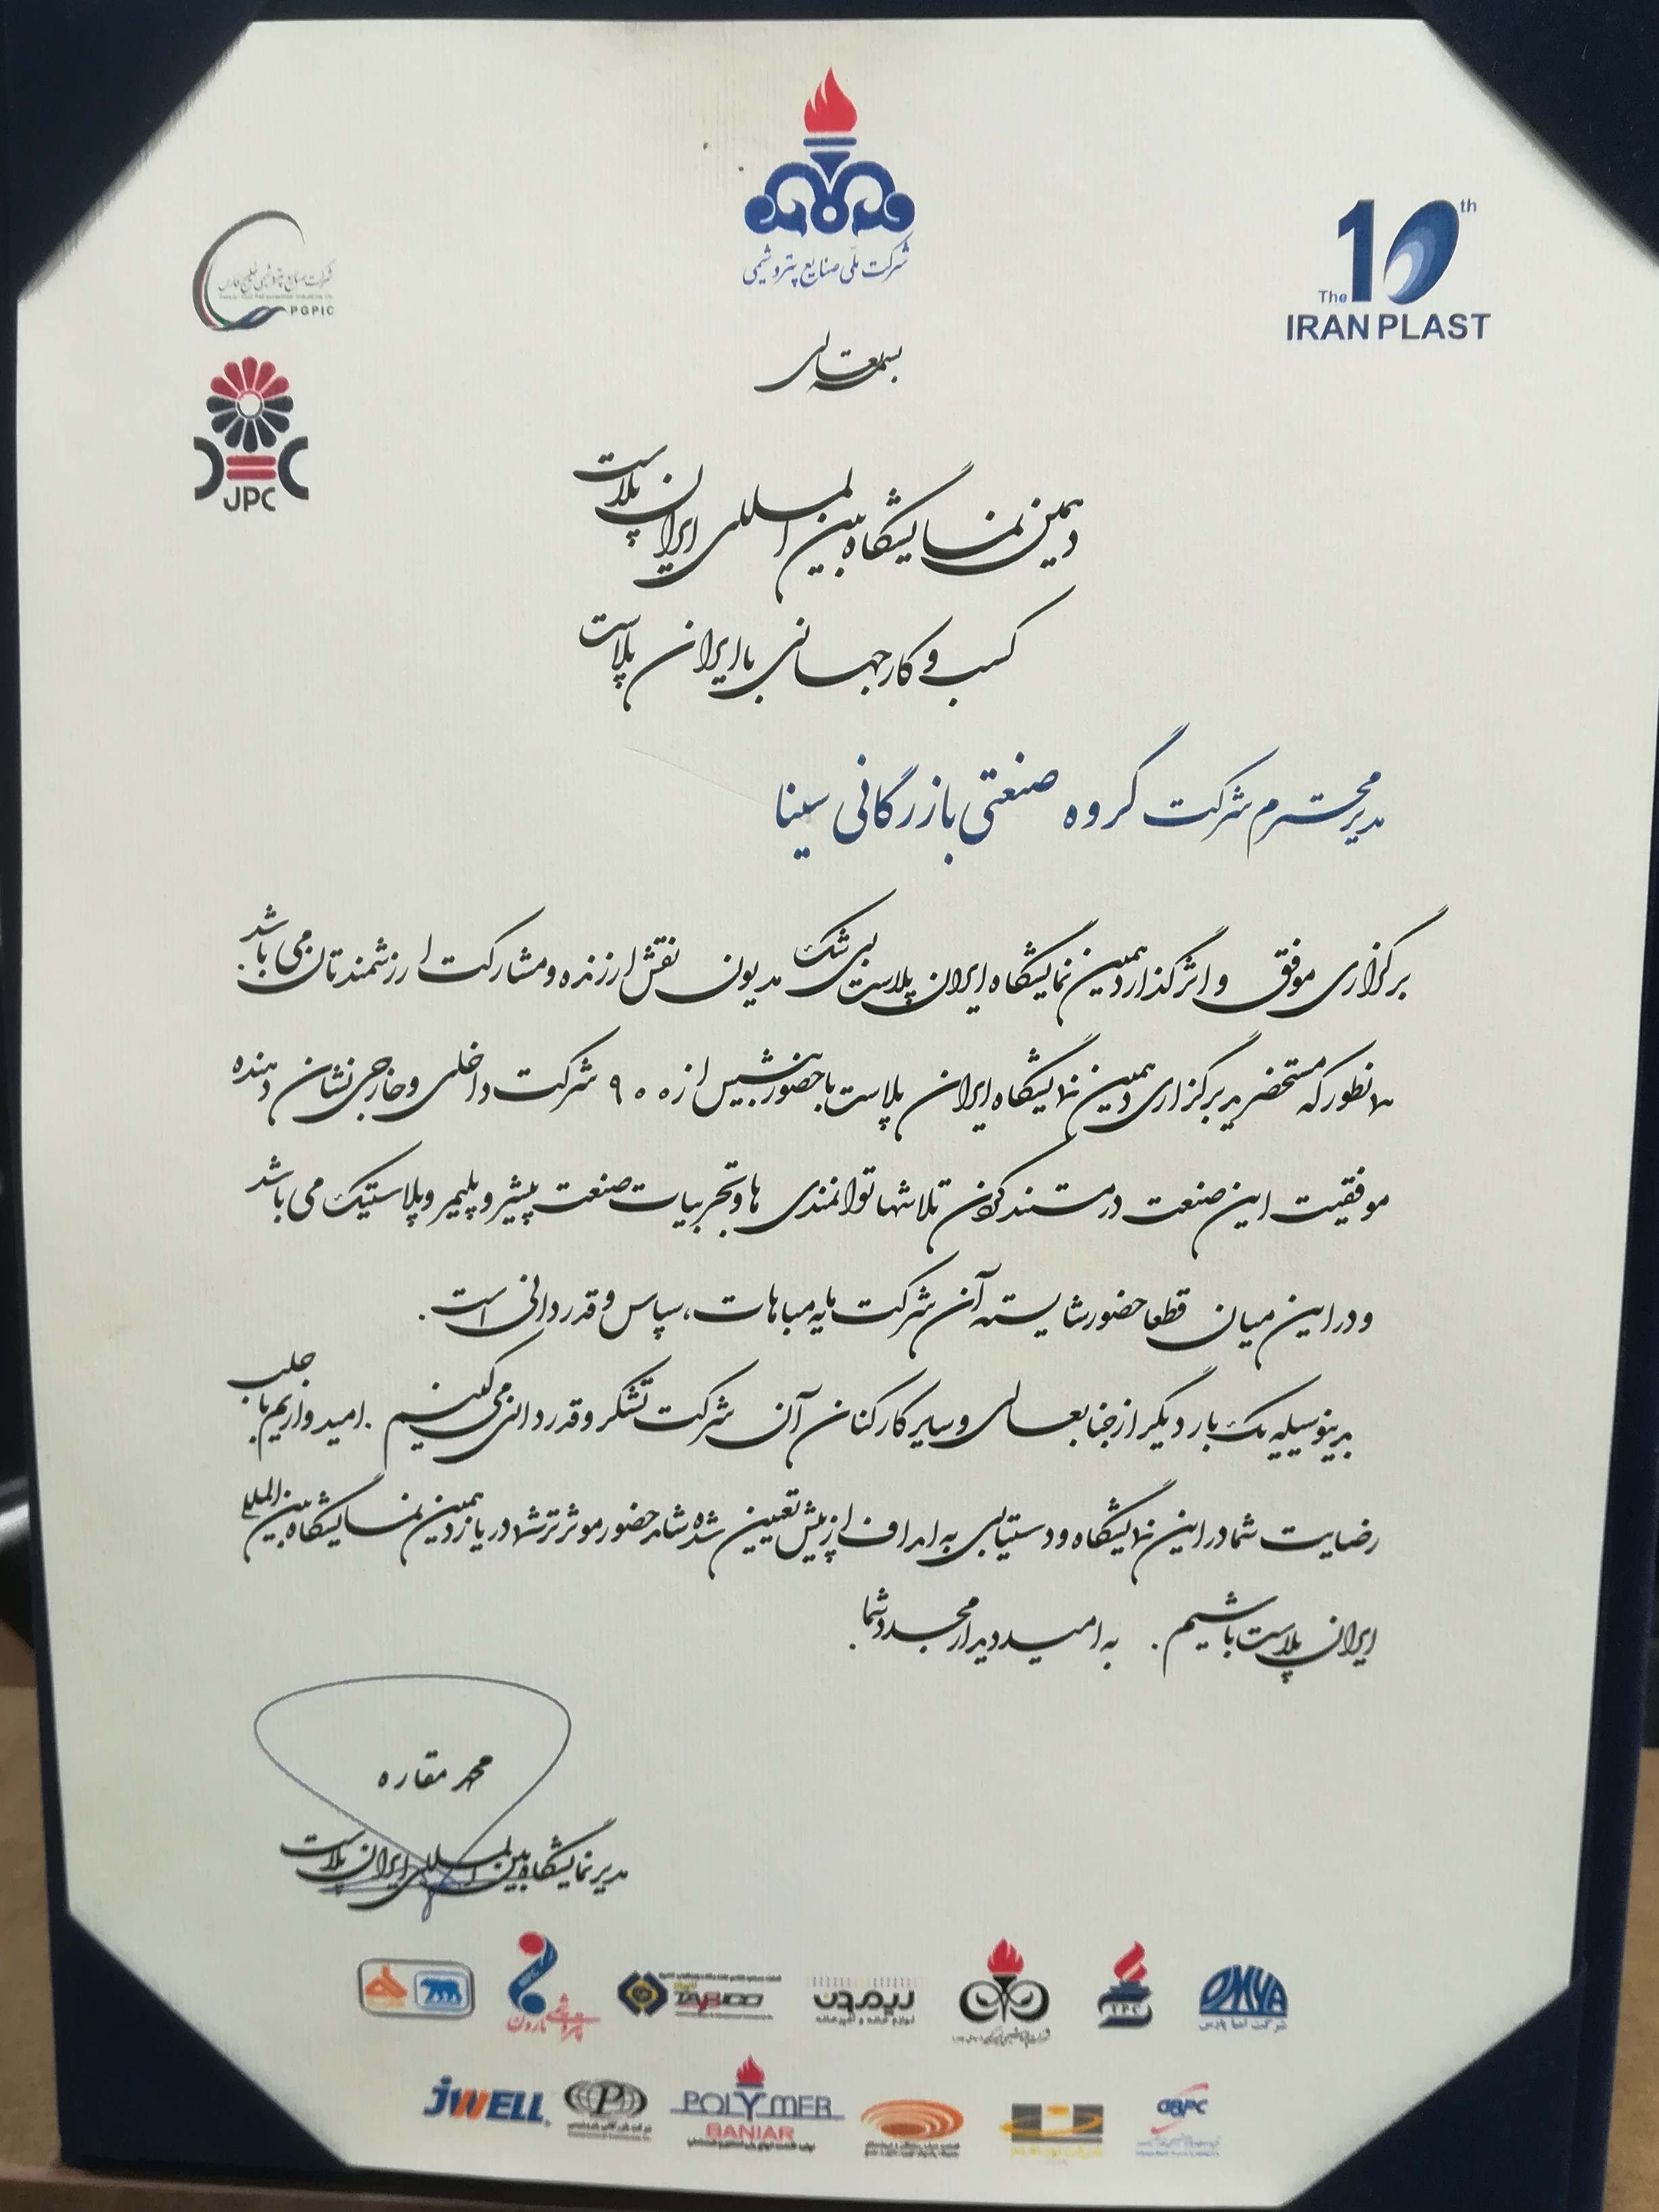 شرکت ملی صنایع پتروشیمی
10th
The
IRAN PLAST
شرکت صنایع پتروشیمی خلیج فارس
PGPIC
JPC
بسمه تعالی
دهمین نمایشگاه بین المللی ایران پلاست
کسب و کار جهانی با ایران پلاست
مدیر محترم شرکت گروه صنعتی بازرگانی سینا
برگزاری موفق و اثرگذار دهمین نمایشگاه ایران پلاست بی شک مدیون نقش ارزنده و مشارکت ارزشمندتان می باشد.
همانطور که مستحضرید برگزاری دهمین نمایشگاه ایران پلاست با حضور بیش از ۹۰۰ شرکت داخلی و خارجی نشان دهنده
موفقیت این صنعت در مستند کردن تلاشها توانمندی ها و تجربیات صنعت پیشرو پلیمر و پلاستیک می باشد
و در این میان قطعا حضور شایسته آن شرکت مایه مباهات، سپاس و قدردانی است.
بدینوسیله یک بار دیگر از جنابعالی و سایر کارکنان آن شرکت تشکر و قدردانی می کنیم. امیدواریم با جلب
رضایت شما در این نمایشگاه و دستیابی به اهداف از پیش تعیین شده شاهد حضور موثرتر شما در یازدهمین نمایشگاه بین المللی
ایران پلاست باشیم. به امید دیدار مجدد شما.
محمد مقاره
مدیر نمایشگاه بین المللی ایران پلاست
OMYA
شرکت امیا پارس
TPC
ریمدن
TABCO
پتروشیمی مارون
GBPC
POLYMER
BANIAR
JWELL